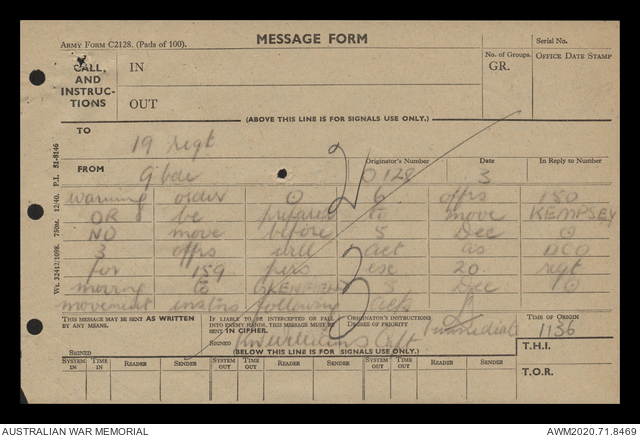 ARMY FORM C2128. (PADS OF 100).
MESSAGE FORM
Serial No.
CALL, AND INSTRUCTIONS
IN
OUT
No. of Groups.
GR.
OFFICE DATE STAMP
(ABOVE THIS LINE IS FOR SIGNALS USE ONLY.)
TO
19 regt
FROM
9 bde
Originator's Number
O 128
Date
3
In Reply to Number
warning order O 6 offrs 150
OR be prepared to move KEMPSEY
NO move before 5 Dec O
3 offrs will act as
for 159 pers 20 regt
moving 5 Dec O
movement instns following
THIS MESSAGE MAY BE SENT AS WRITTEN BY ANY MEANS.
IF LIABLE TO BE INTERCEPTED OR FALL INTO ENEMY HANDS, THIS MESSAGE MUST BE SENT IN CIPHER.
ORIGINATOR'S INSTRUCTIONS DEGREE OF PRIORITY
Immediate
TIME OF ORIGIN
1136
SIGNED
SIGNED
Capt
(BELOW THIS LINE IS FOR SIGNALS USE ONLY.)
T.H.I.
SYSTEM IN TIME IN READER SENDER SYSTEM OUT TIME OUT READER SENDER SYSTEM OUT TIME OUT READER SENDER
T.O.R.
51-8146
AUSTRALIAN WAR MEMORIAL
AWM2020.71.8469